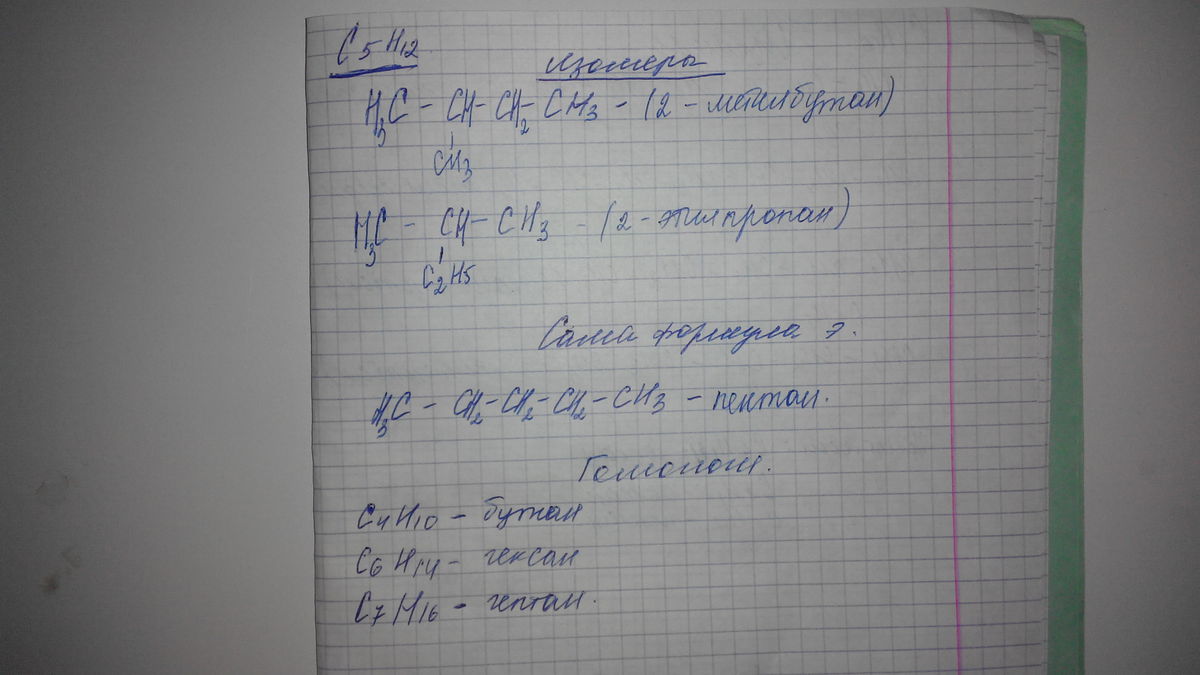 C5H12
изомеры
H3C - CH - CH2 - CH3 - (2 - метилбутан)
CH3
H3C - CH - CH3 - (2 - этилпропан)
C2H5
Сама формула э.
H3C - CH2 - CH2 - CH2 - CH3 - пентан.
Гомологи.
C4H10 - бутан
C6H14 - гексан
C7H16 - гептан.